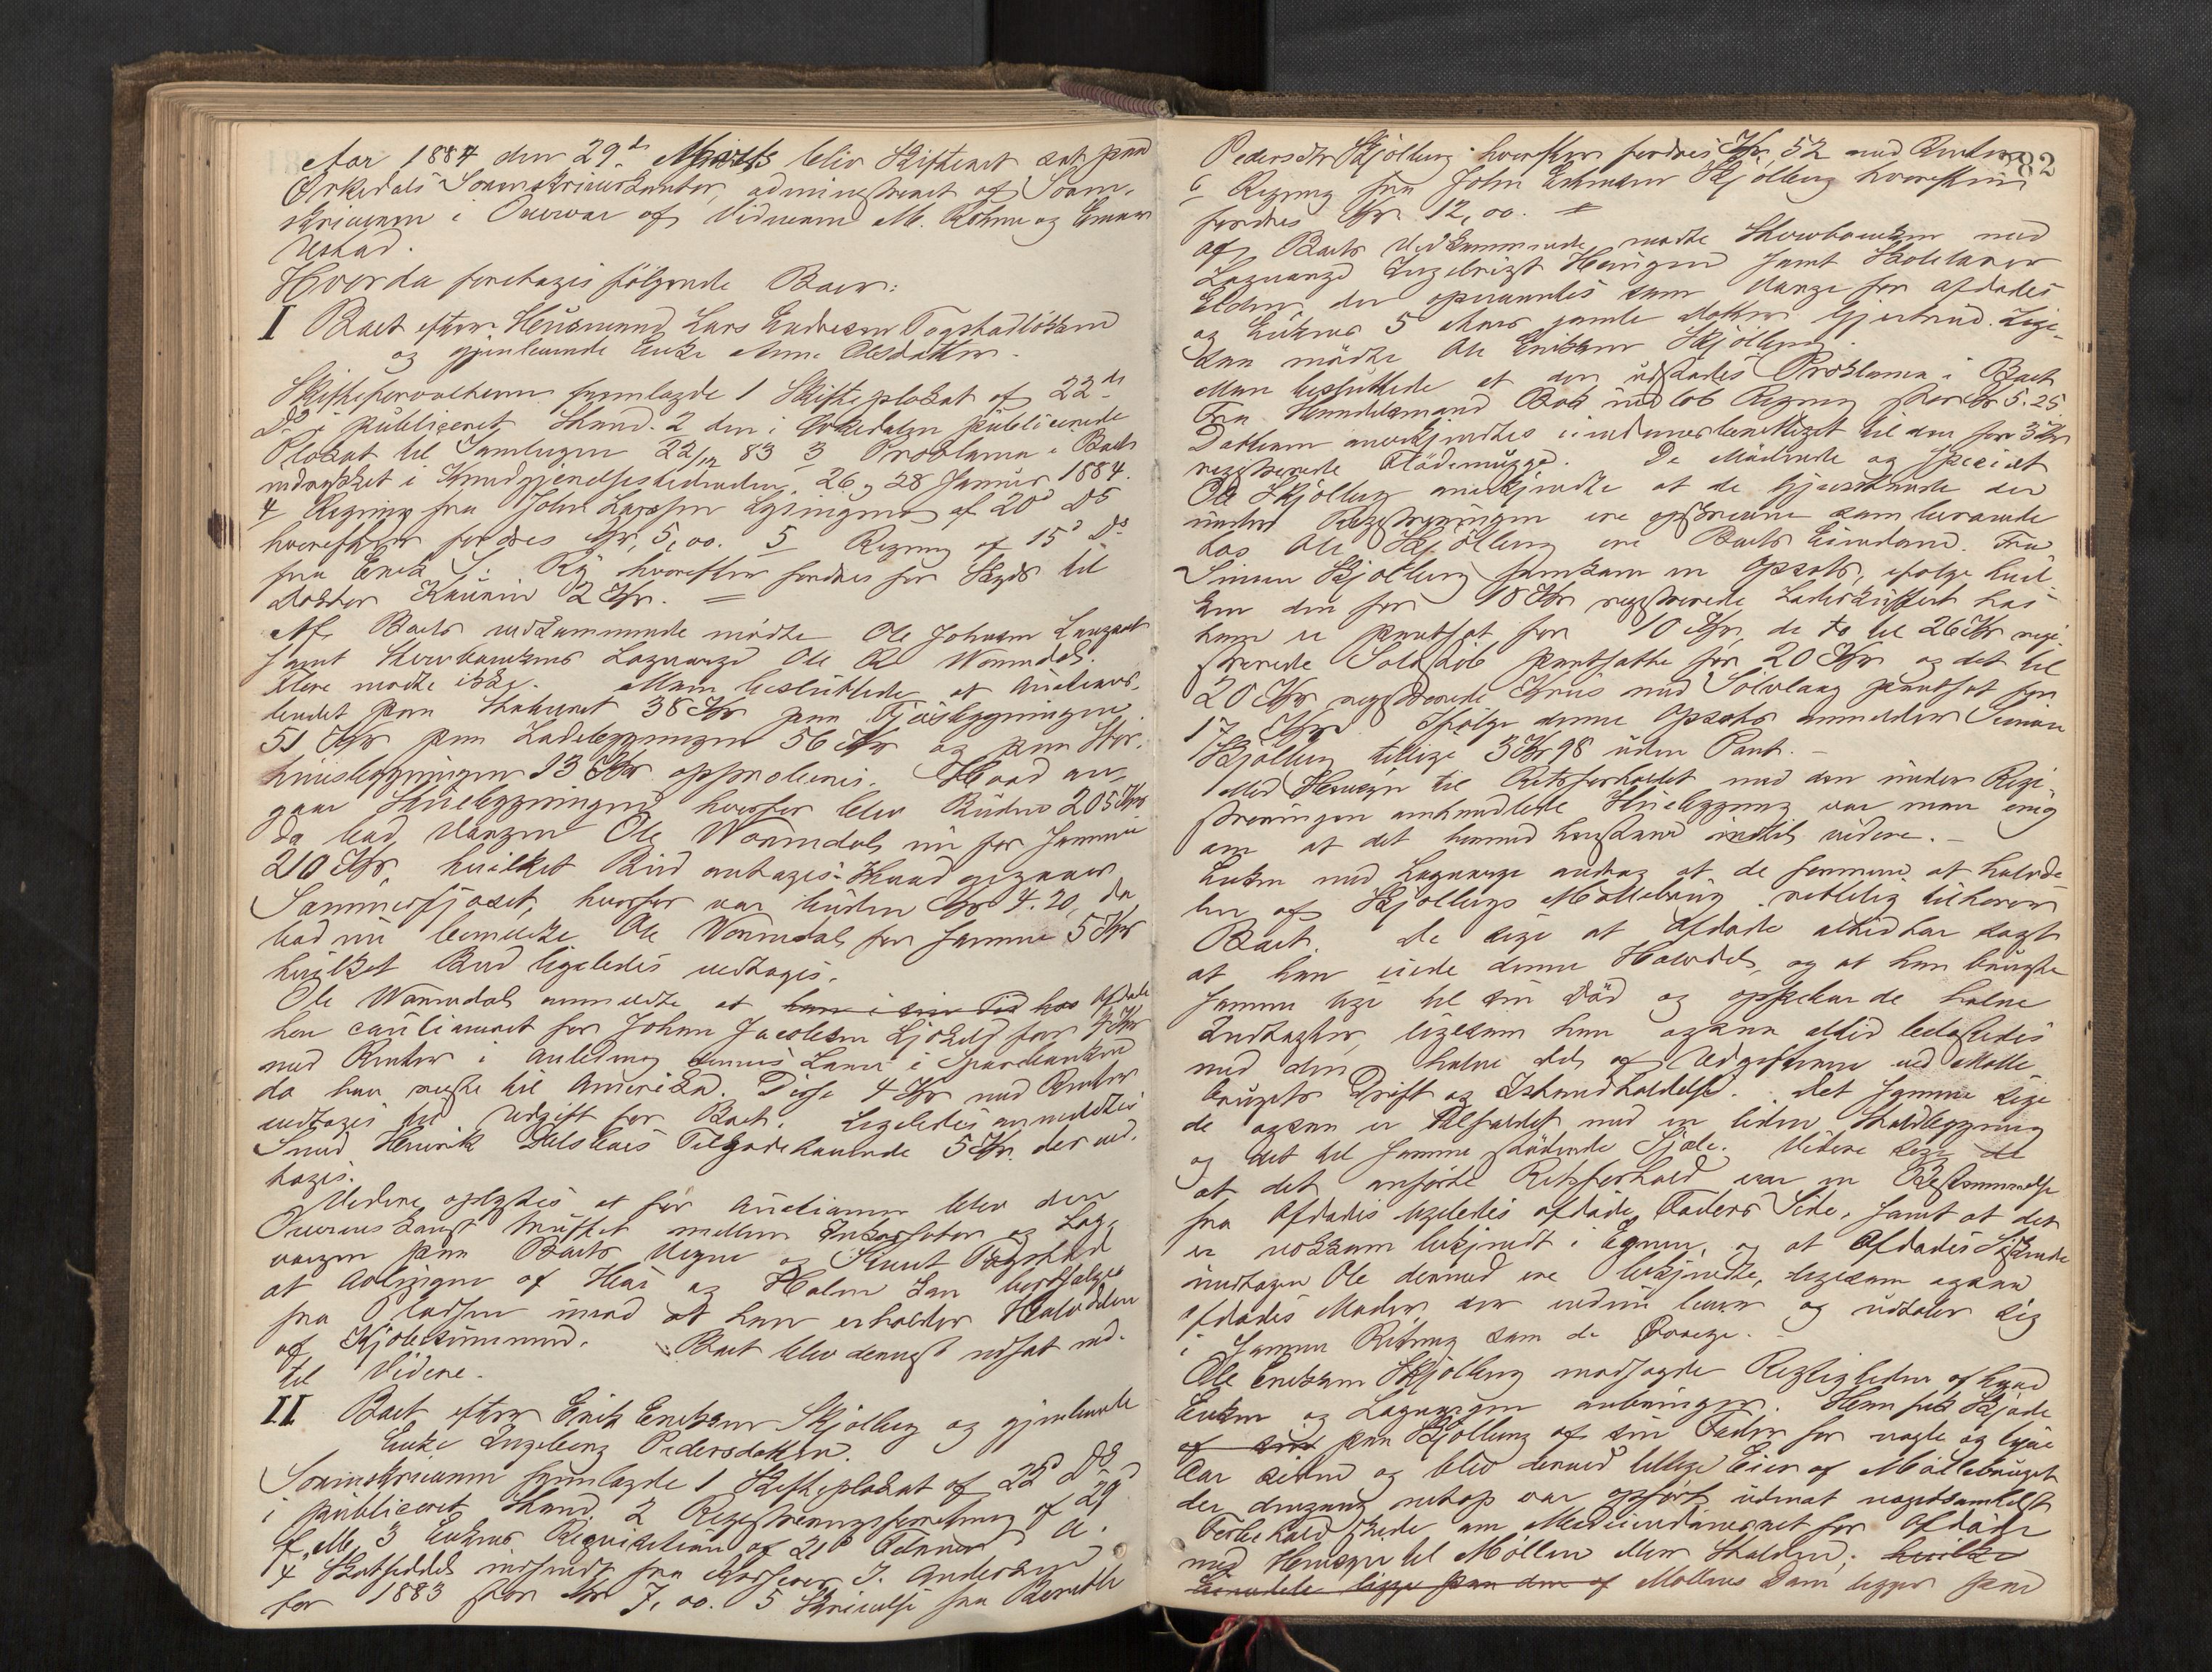 Aar 1884 den 29de Marts blev Skifteret sat paa
Orkedals Sorenskriverkontor, administreret af Soren-
skriveren i Overvær af Vidnerne M. Röhme og Einar
Ustad.
Hvorda foretages følgende Boer:
I Boet efter Husmand Lars Endresen Togstadløkken
og gjenlevende Enke Anne Olsdatter.
Skifteforvalteren fremlagde 1 Skifteplakat af 22de
Ds i publiceret Stand. 2 den i Orkedalen publicerede
Plakat til Samlingen 22/12 83 3 Proklama i Boet
indrykket i Kundgjørelsestidenden 26 og 28 Januar 1884.
4 Regning fra John Larssen Lysingmo af 20de Ds
hvorefter fordres Kr. 5,00. 5 Regning af 15de Ds
fra Erik J. Ry hvorefter fordres for Skyds til
Doktor 2 Kr. =
Af Boets vedkommende mødte Ole Johnsen
samt Stervboenkens Laugværge Ole R. Wormdal.
Flere mødte ikke. Man besluttede at Auctions-
budet paa Stabburet 38 Kr paa Fjøsbygningen
51 Kr paa Ladebygningen 56 Kr og paa Stør-
husbygningen 13 Kr approberes. Hvad an-
gaar Stuebygningen hvorfor blev Buden 205 Kr
da bød Værgen Ole Wormdal nu for samme
210 Kr, hvilket Bud antages. Hvad angaar
Sommerfjøset, hvorfor var buden Kr 4.20, da
bød nu bemeldte Ole Wormdal for samme 5 Kr
hvilket Bud ligeledes vedtages.
Ole Wormdal anmeldte at han i sin Tid hos Afdøde
har cautioneret for Johan Jacobsen for 4 Kr
med Renter i Anledning dennes Laan i Sparebanken
da han reiste til Amerika. Disse 4 Kr med Renter
vedtages til Udgift for Boet. Ligeledes anmeldtes
Smed Henrik Tilgodehavende 5 Kr. der ved-
tages.
Videre oplystes at før Auctionen blev den
Overenskomst truffet mellem Inkassator og Laug-
værgen paa Boets Vegne og Knut Togstad
at Avlingen af Høi og Halm kan bortsælges
fra Pladsen imod at han erholder Halvdelen
af Kjøbesummen. Boet blev dernæst udsat ind-
til Videre.
II Boet efter Erik Eriksen Skjølberg og gjenlevende
Enke Ingeborg Pedersdatter.
Sorenskriveren fremlagde 1 Skifteplakat af 25de Ds
i publiceret Stand. 2 Registreringsforretning af 29
f. M. 3 Enkens Requisition af 21de Februar d. A.
4 Skatseddel indsendt fra Kasserer J. Andersen
for 1883 stor Kr 7,00. 5 Skrivelse fra Berethe
82
Pedersdtr Skjølberg hvorefter fordres Kr. 52 med Renter
6 Regning fra John Estensen Skjølberg hvorefter
fordres Kr 12,00. =
Af Boets Vedkommende mødte Stervboenken med
Laugværge Ingebrigt samt Skolelærer
der opnævntes som Værge for Afdødes
og Enkens 5 Aars gamle Datter Gjertrud. Lige-
saa mødte Ole Eriksen Skjølberg.
Man besluttede at der udstædes Proklama i Boet
Fra Handelsmand indløb Regning stor Kr 5.25.
Datteren anerkjendtes eiendomsberettiget til den for 3 Kr
registrerede Flødemugge. De Mødende og specielt
Ole Skjølberg anerkjendte at de Gjenstande der
under Registreringen ere opskrevne som beroende
hos Ole Skjølberg ere Boets Eiendom. Fra
Simen Skjølberg fremkom en Opsats, ifølge hvil-
ken den for 18 Kr registrerede Laderkuffert hos
ham er pantsat for 10 Kr, de to til 26 Kr regi-
strerede pantsatte for 20 Kr og det til
20 Kr registrerede Krus med Sølvlaag pantsat for
17 Kr. Ifølge denne Opsats anmelder Simen
Skjølberg tillige 3 Kr 98 uden Pant. –
Med Hensyn til Retsforholdet med den under Regi-
streringen omhandlede Stuebygning var man enig
om at det hermed henstaar indtil videre. –
Enken med Laugværge andrage at de formene at halvde-
len af Skjølbergs Møllebrug rettelig tilhører
Boet. De sige at Afdøde altid har sagt
at han eiede denne Halvdel, og at han brugte
samme lige til sin Død og oppebar de halve
Indtægter, ligesom han ogsaa altid belastedes
med den halve Del af Udgifterne ved Mølle-
brugets Drift og Istandholdelse. Det samme sige
de ogsaa er Tilfældet med en liden Staldbygning
og det til samme stødende Fjøle. Videre sige de
at det anførte Retsforhold var en Bestemmelse
fra Afdødes ligeledes afdøde Faders Side, samt at det
er noksom bekjendt i Egnen, og at Afdødes Søskende
undtagen Ole dermed ere bekjendte, ligesom ogsaa
Afdødes Moder, der endnu lever og udtaler sig
i samme Retning som de Øvrige. –
Ole Eriksen Skjølberg modsagde Rigtigheden af hvad
Enken og Laugværgen anbringer. Han fik Skjøde
af sin paa Skjølberg af sin Fader for nogle og tyve
Aar siden og blev derved tillige Eier af Møllebruget
der dengang netop var opført, uden at nogetsomhelst
Forbehold skede om Medeiendomsret for Afdøde
med Hensyn til Møllen eller Stalden; hvilke
Eiendele ligge paa den af Møllens Dam ligger paa